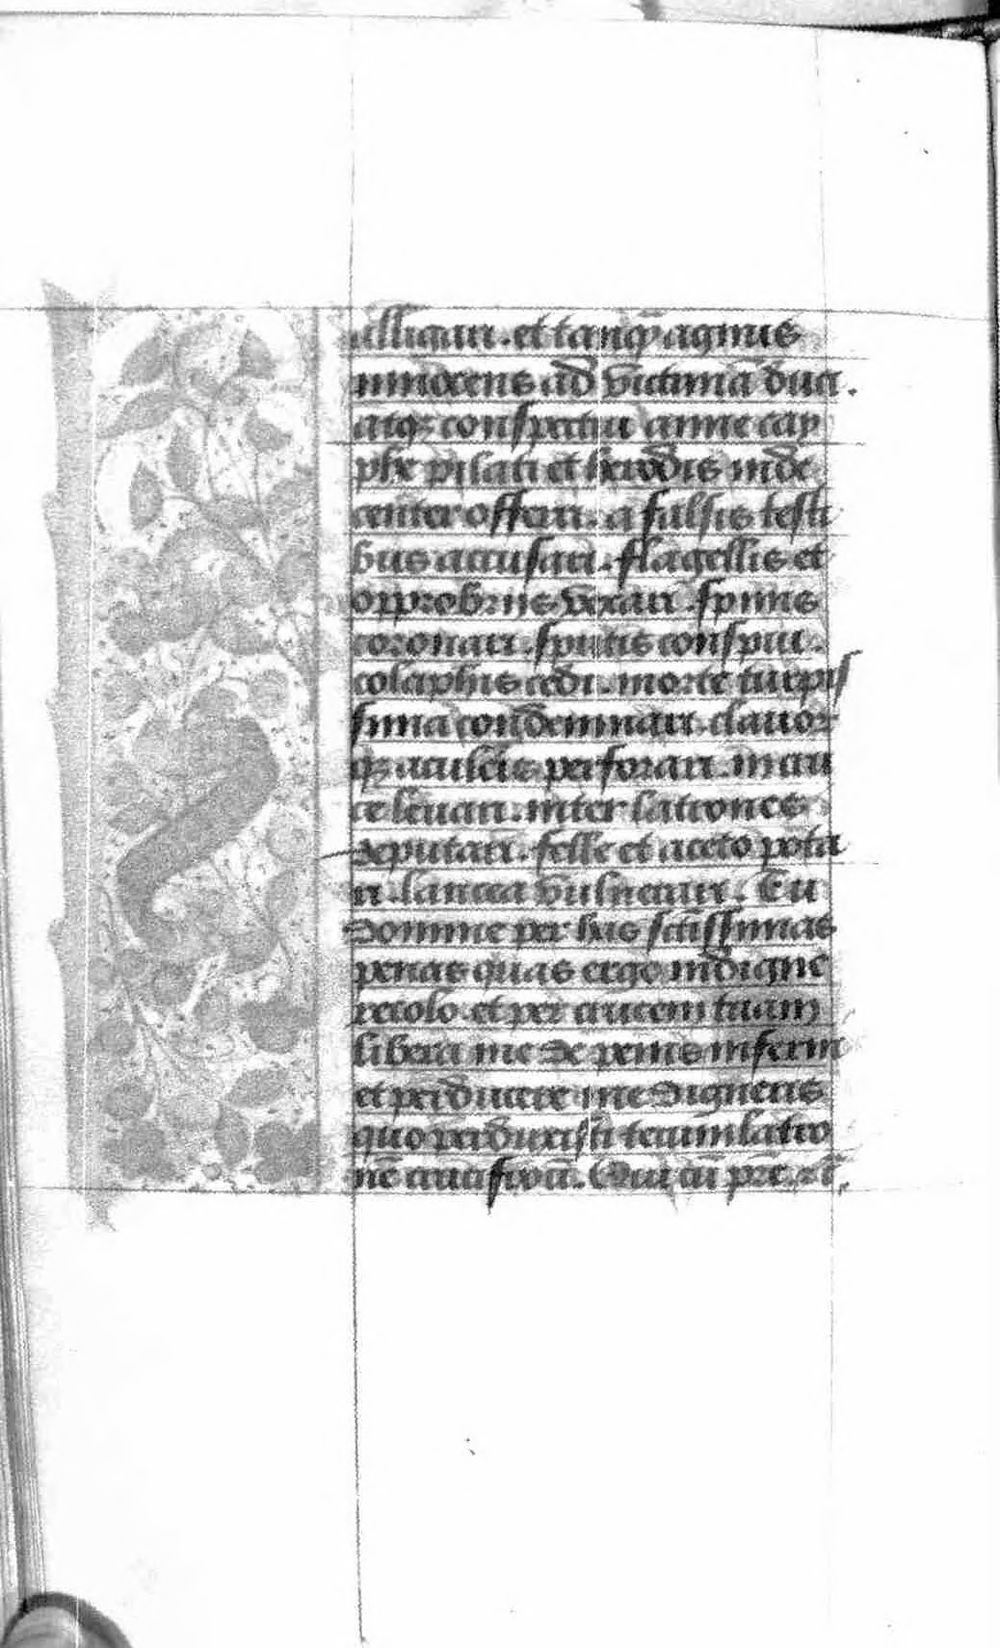 alligari. et tanq̄ agnus
innocens ad victimā duci.
atqꝫ conspectui anne cay
phe pilati et herodis inde
center offerri. a falsis testi
bus accusari. flagellis et
opprobriis vexari. spinis
coronari. sputis conspui.
colaphis cedi. morte turpis
sima condemnari. clavor
qꝫ aculeis perforari. in cru
ce levari. inter latrones
deputari. felle et aceto pota
ri. lancea vulnerari. Tu
domine per has sctissimas
penas quas ergo indigne
recolo. et per crucem tuam
libera me de penis inferni
et perducere me digneris
quo perduxisti tecum latro
nē crucifixū. Qui cū pr̄e. et.